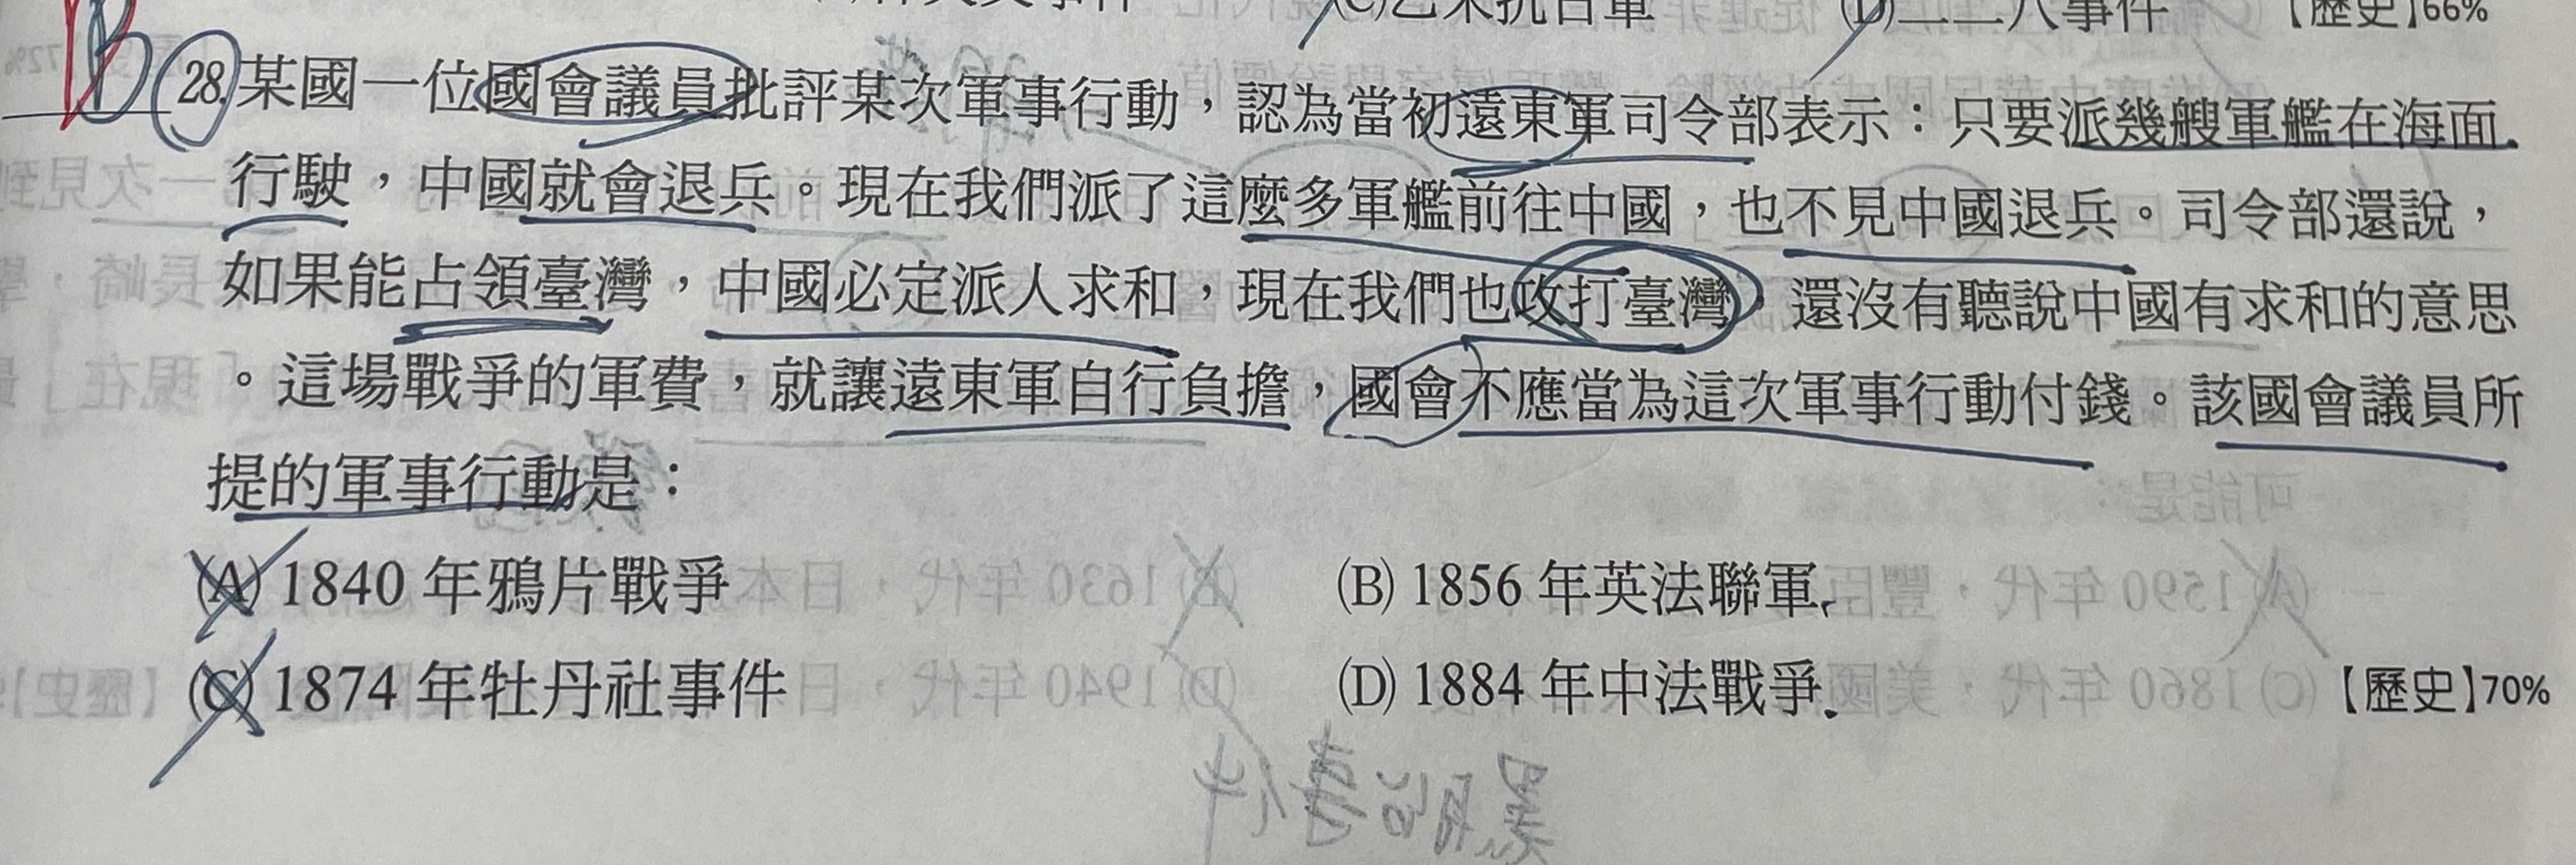 (D)二二八事件 【歷史】66%
B 28.某國一位國會議員批評某次軍事行動，認為當初遠東軍司令部表示：只要派幾艘軍艦在海面
行駛，中國就會退兵。現在我們派了這麼多軍艦前往中國，也不見中國退兵。司令部還說，
如果能占領臺灣，中國必定派人求和，現在我們也攻打臺灣，還沒有聽說中國有求和的意思
。這場戰爭的軍費，就讓遠東軍自行負擔，國會不應當為這次軍事行動付錢。該國會議員所
提的軍事行動是：
(A) 1840 年鴉片戰爭 (B) 1856 年英法聯軍
(C) 1874 年牡丹社事件 (D) 1884 年中法戰爭 【歷史】70%